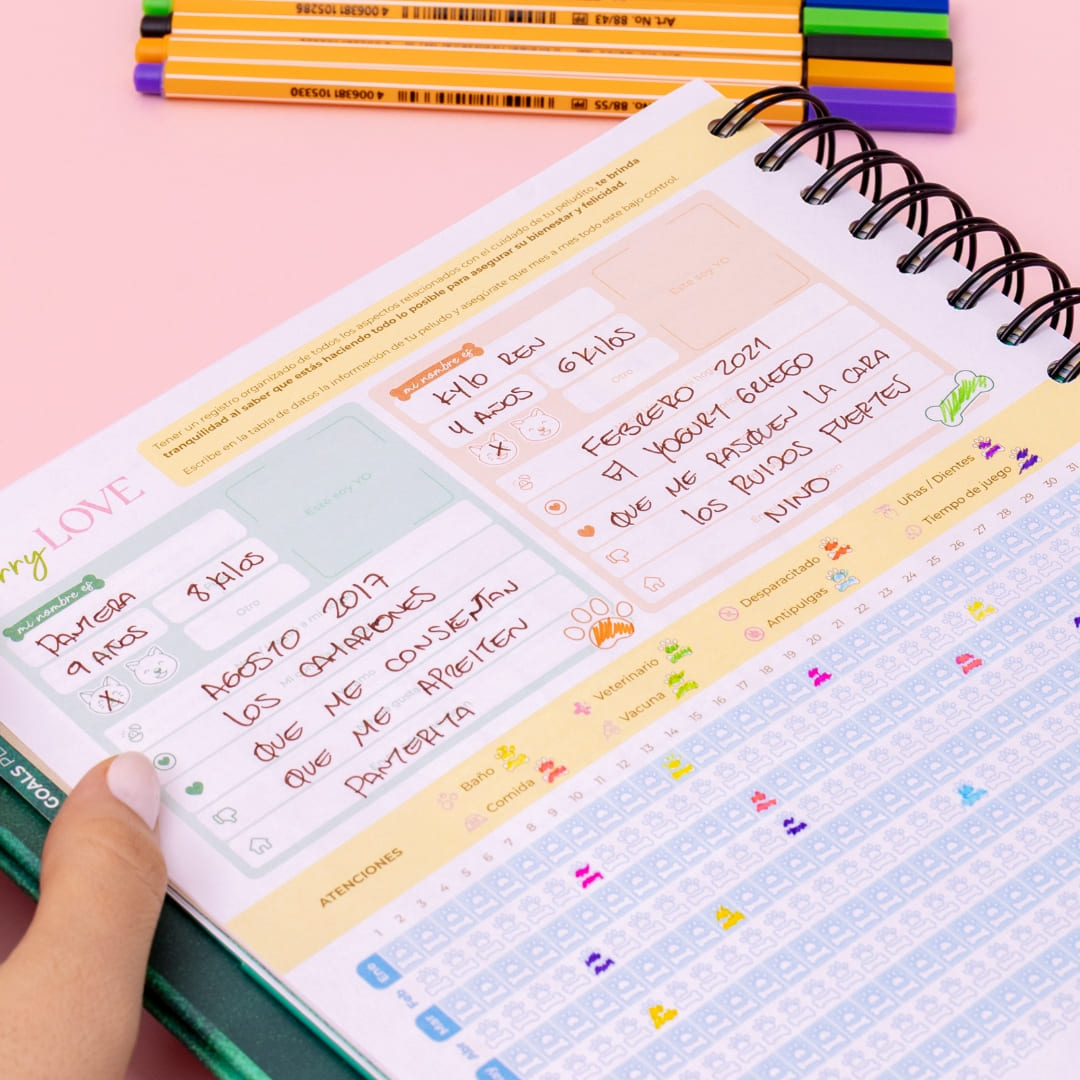 4 006381 105286
Art. No. 88/43
4 006381 105330
88/55
Tener un registro organizado de todos los aspectos relacionados con el cuidado de tu peludito, te brinda
tranquilidad al saber que estás haciendo todo lo posible para asegurar su bienestar y felicidad.
Escribe en la tabla de datos la información de tu peludo y asegúrate que mes a mes todo este bajo control.
LOVE
mi nombre es
PANTERA
9 AÑOS
8 Kilos
Otro
Este soy YO
AGOSTO 2017
LOS CAMARONES
QUE ME CONSIENTAN
QUE ME APRETEN
PANTERITA
mi nombre es
Kylo REN
4 AÑOS
6 Kilos
Otro
Este soy YO
FEBRERO 2021
El YOGURT GRIEGO
QUE ME RASQUEN LA CARA
los RUIDOS FUERTES
NINO
GOALS
ATENCIONES
Baño
Comida
Veterinario
Vacuna
Desparacitado
Antipulgas
Uñas / Dientes
Tiempo de juego
1 2 3 4 5 6 7 8 9 10 11 12 13 14 15 16 17 18 19 20 21 22 23 24 25 26 27 28 29 30 31
Ene
Feb
Mar
Abr